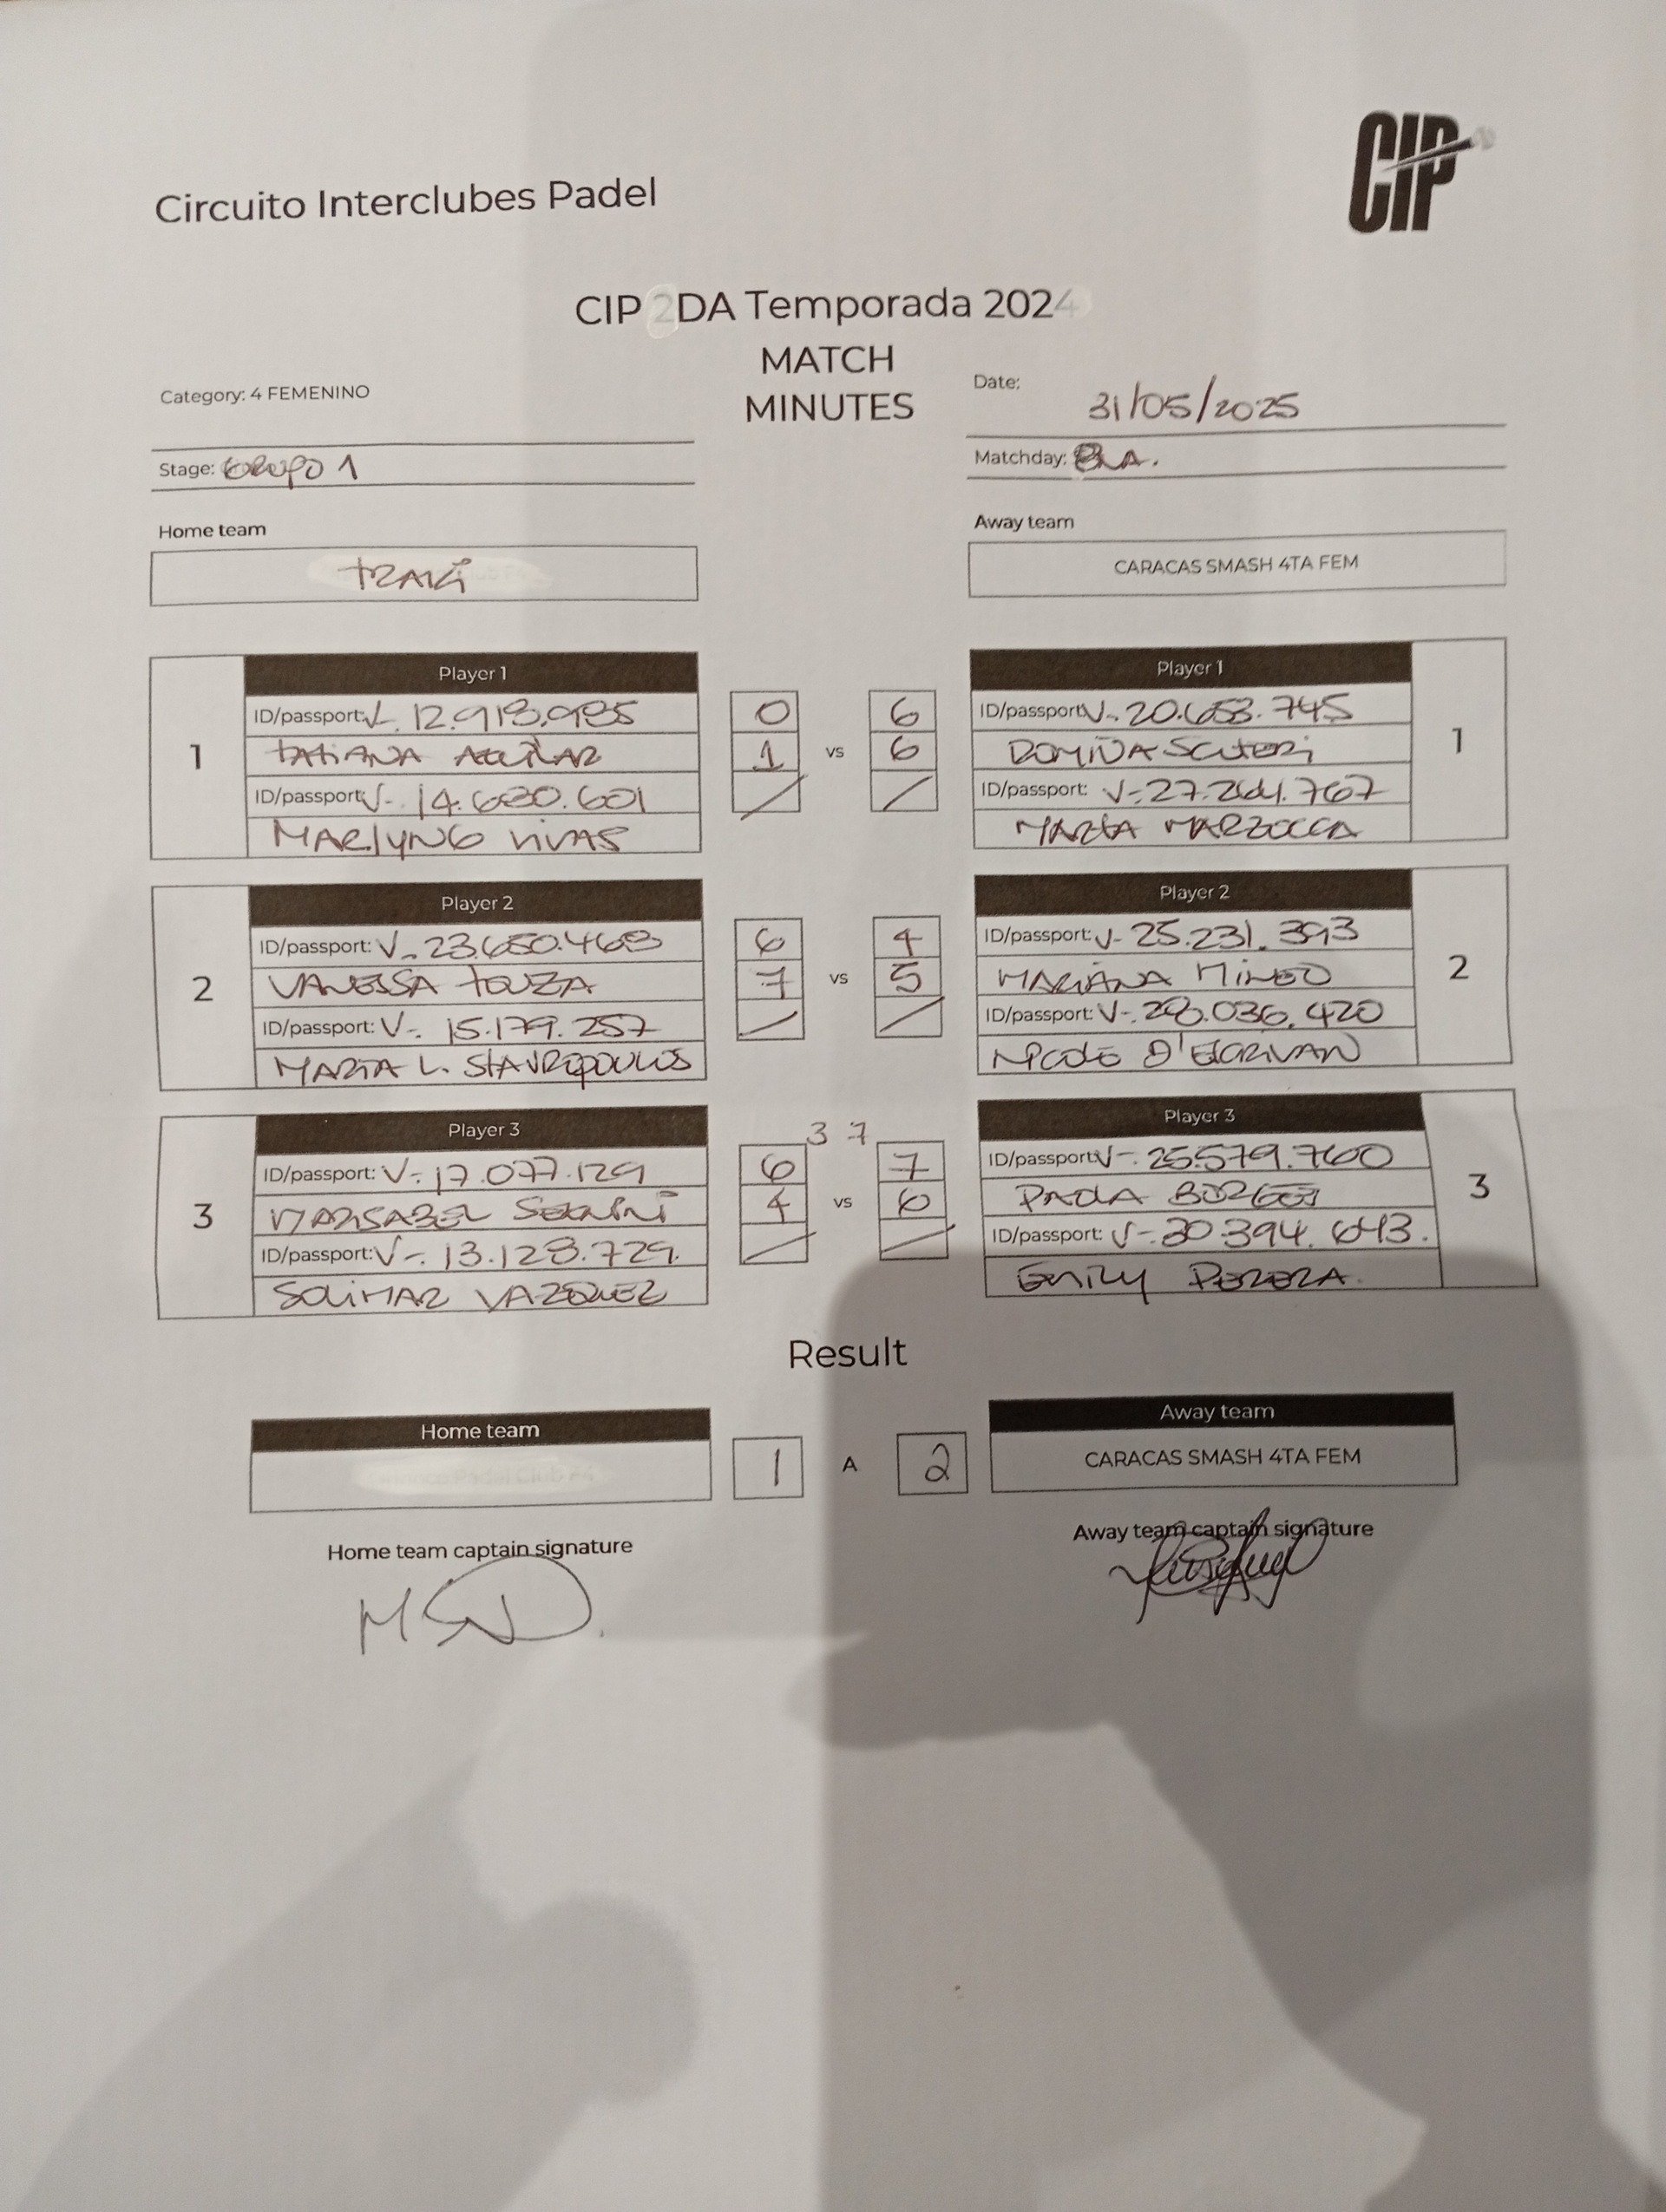 CIP
Circuito Interclubes Padel
CIP 2DA Temporada 2024
MATCH
MINUTES
Category: 4 FEMENINO
Date: 31/05/2025
Stage: Grupo 1
Matchday:
Home team
Away team
TRAKI
CARACAS SMASH 4TA FEM
1
Player 1
ID/passport: V-. 12.918.985
TATIANA AGUILAR
ID/passport: V-. 14.680.601
MARLYNG VIVAS
0 6
1 vs 6
/ /
Player 1
ID/passport: V-. 20.653.745
ROMINA SCUTERI
ID/passport: V-. 27.264.767
MARIA MARZOCCA
1
2
Player 2
ID/passport: V-. 23.650.468
VANESSA TOUZA
ID/passport: V-. 15.179.257
MARIA L. STAVROPOULOS
6 4
7 vs 5
/ /
Player 2
ID/passport: V- 25.231.393
MARIANA MINEO
ID/passport: V-. 28.036.420
NICOLE D'ESCRIVAN
2
3
Player 3
ID/passport: V-. 17.077.129
MARISABEL
ID/passport: V-. 13.128.729.
SOLIMAR VAZQUEZ
3 7
6 7
4 vs 6
/ /
Player 3
ID/passport: V-. 25.579.760
PAOLA BORGES
ID/passport: V-. 30.394.643.
EMILY PERERA.
3
Result
Home team
1 A 2
Away team
CARACAS SMASH 4TA FEM
Home team captain signature
Away team captain signature